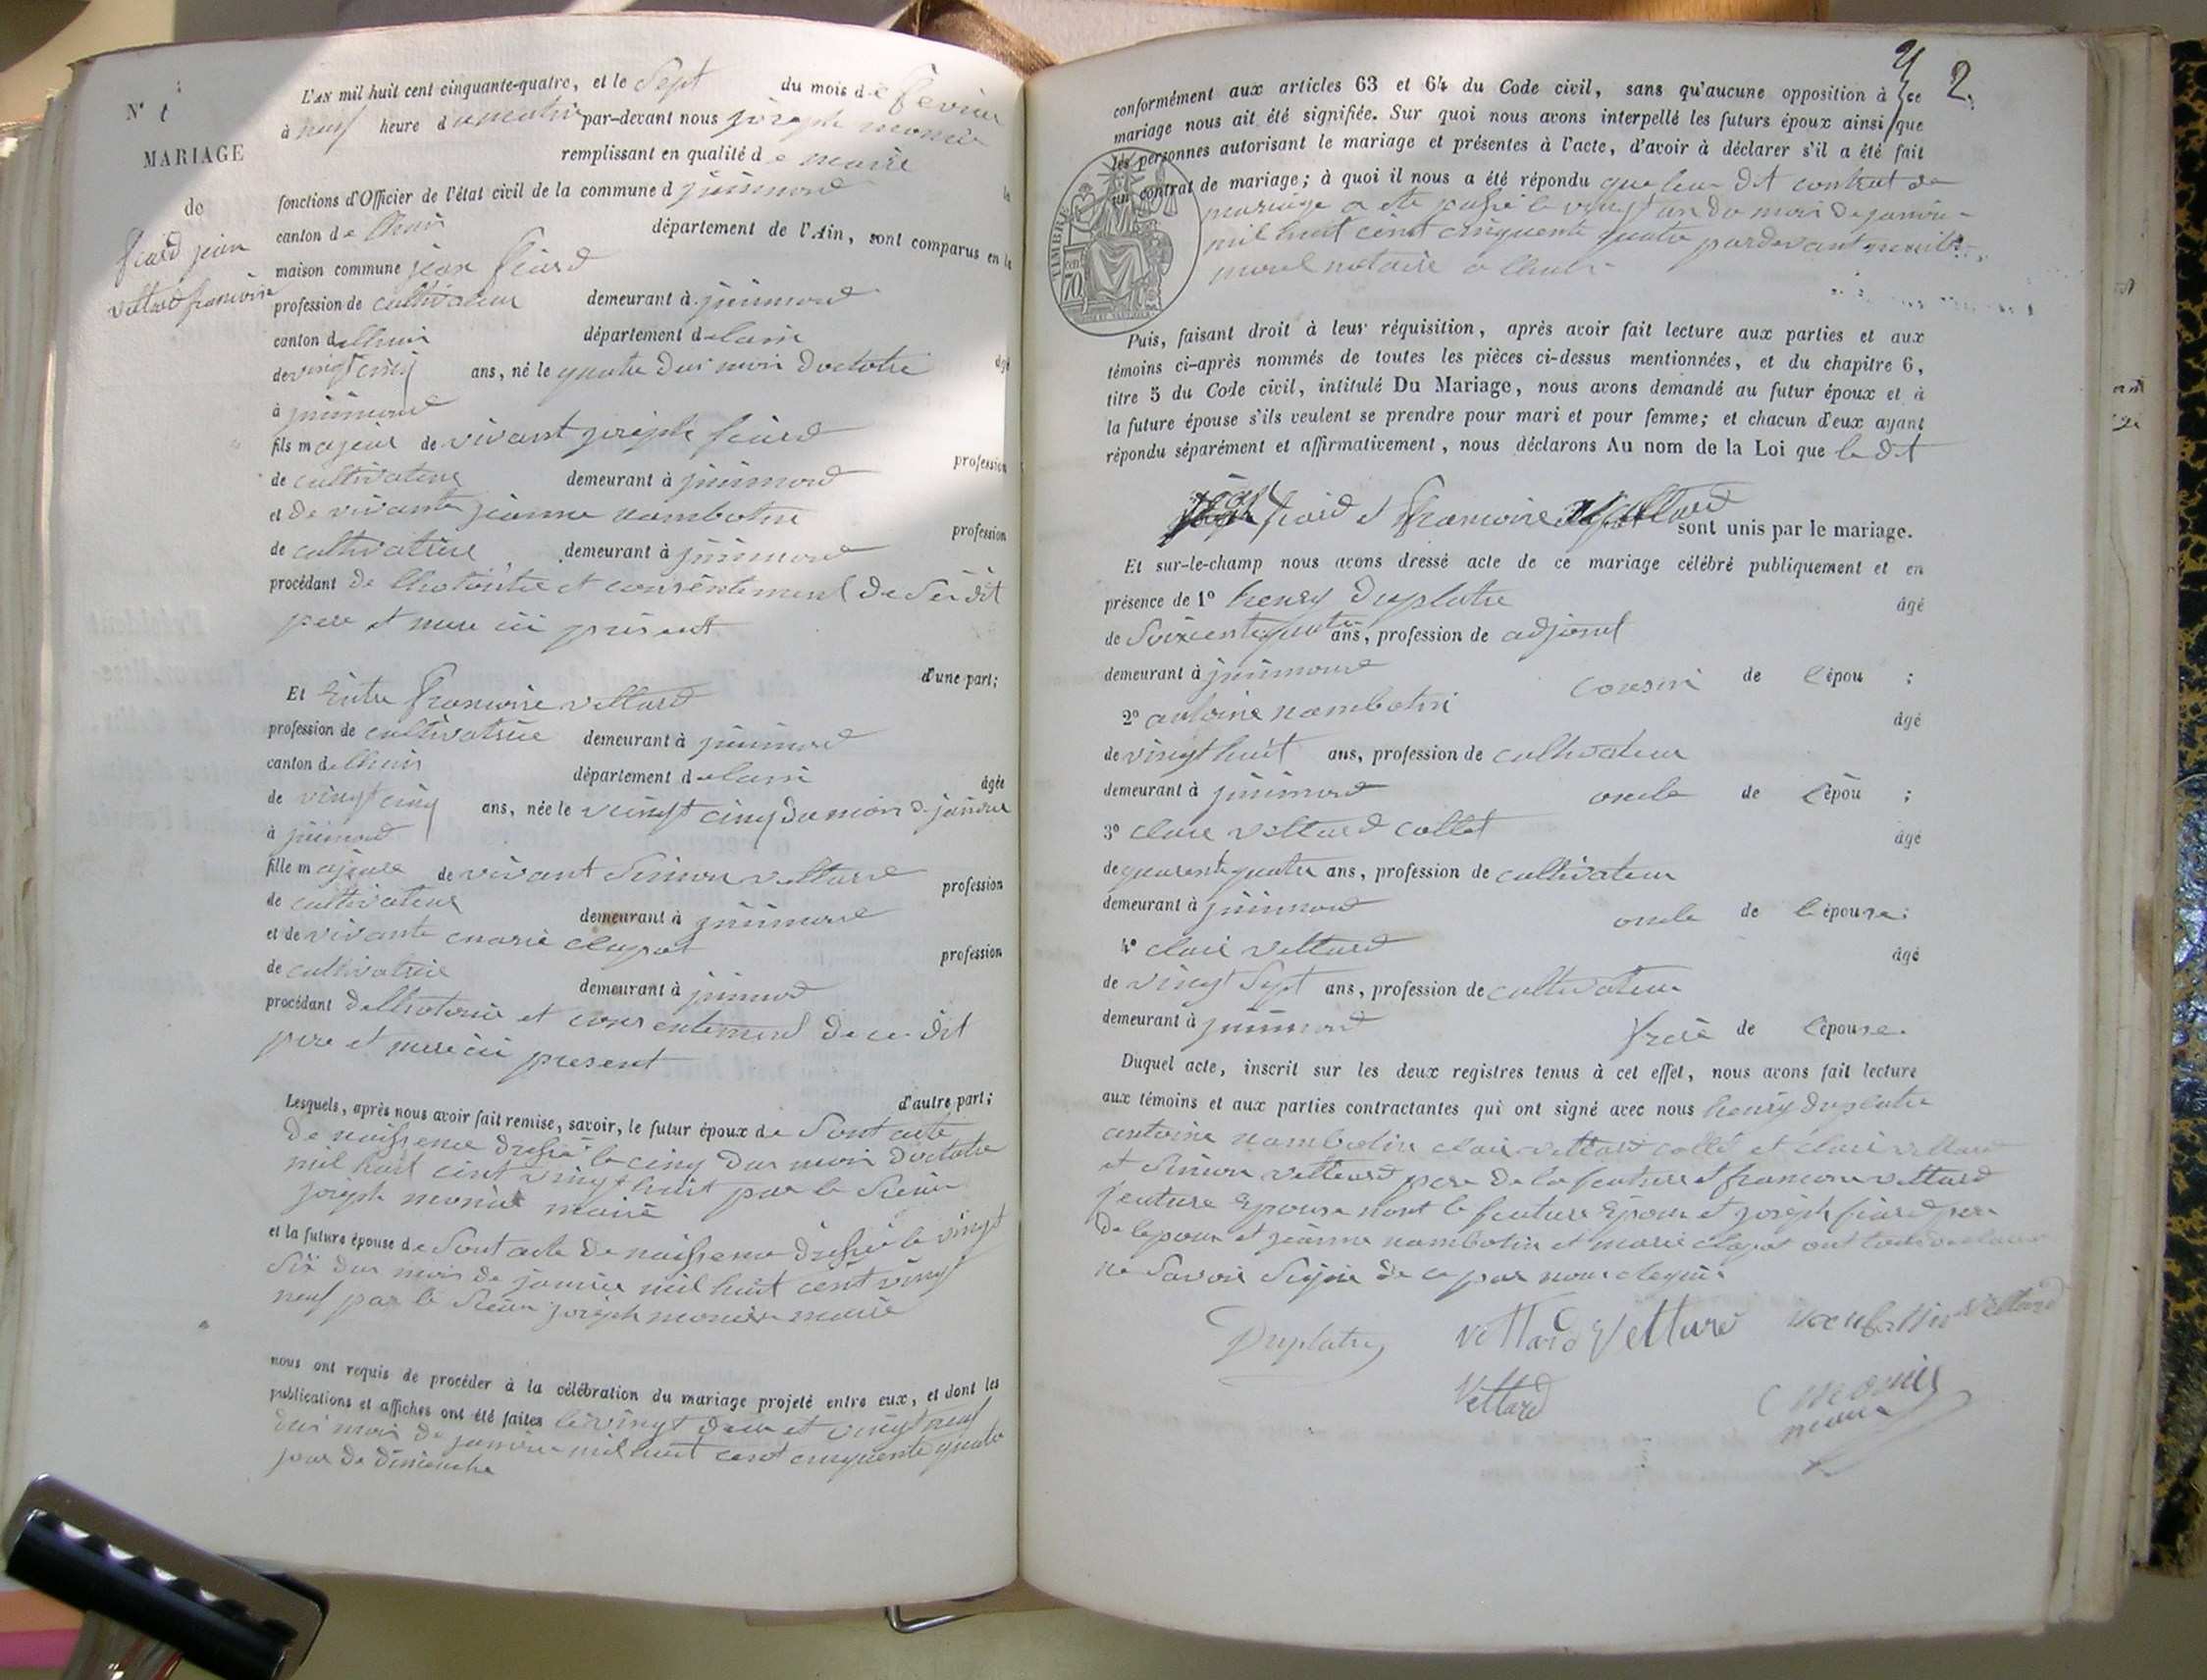 N° 1
MARIAGE
de
fiard jean
vettard francoise
L'AN mil huit cent cinquante-quatre, et le Sept du mois de fevrier
à neuf heure du matin par-devant nous joseph monier
remplissant en qualité de maire
fonctions d'Officier de l'état civil de la commune d
canton de lhuis département de l'Ain, sont comparus en la
maison commune jean fiard
profession de cultivateur demeurant à
canton de lhuis département de lain
de vingt cinq ans, né le quatre dui mois doctobre âgé
à
fils majeur de vivant joseph fiard
de cultivateur demeurant à profession
et de vivante jeanne nambotin
de cultivatrice demeurant à profession
procédant de lhotorité et consentement de Sei dit
pere et mere ici présent
d'une part;
Et Entre francoise vettard
profession de cultivatrice demeurant à
canton de lhuis département de lain
de vingt cinq ans, née le veingt cinq du mois de janvier âgée
à
fille majeure de vivant Simon vettard
de cultivateur demeurant à profession
et de vivante marie clapot
de cultivatrice demeurant à profession
procédant de lhotorié et consentement de ce dit
pere et mere ici present
d'autre part;
Lesquels, après nous avoir fait remise, savoir, le futur époux de Sont acte
de naissence dressé le cinq dus mois doctobre
mil huit cent vingt huit par le Sieur
joseph monier maire
et la future épouse de Sont acte de naissence dressée le vingt
Six dus mois de janvier mil huit cent vingt
neuf par le Sieur joseph monier maire
nous ont requis de procéder à la célébration du mariage projeté entre eux, et dont les
publications et affiches ont été faites le vingt deux et vingt neuf
dui mois de janvier mil huit cent cinquente quatre
jour de dimenche
2.
conformément aux articles 63 et 64 du Code civil, sans qu'aucune opposition à ce
mariage nous ait été signifiée. Sur quoi nous avons interpellé les futurs époux ainsi que
les personnes autorisant le mariage et présentes à l'acte, d'avoir à déclarer s'il a été fait
un contrat de mariage; à quoi il nous a été répondu que leur dit contrat de
mariage a ete passé le vingt un du mois de janvier
mil huit cent cinquente quatre pardevant
notaire a lhuis
TIMBRE
70
Puis, faisant droit à leur réquisition, après avoir fait lecture aux parties et aux
témoins ci-après nommés de toutes les pièces ci-dessus mentionnées, et du chapitre 6,
titre 5 du Code civil, intitulé Du Mariage, nous avons demandé au futur époux et à
la future épouse s'ils veulent se prendre pour mari et pour femme; et chacun d'eux ayant
répondu séparément et affirmativement, nous déclarons Au nom de la Loi que le dit
jean fiard et francoise vettard sont unis par le mariage.
Et sur-le-champ nous avons dressé acte de ce mariage célébré publiquement et en
présence de 1° henry duplatre âgé
de Soixente quatre ans, profession de adjoint
demeurant à cousin de lépou ;
2° antoine nambotin âgé
de vingt huit ans, profession de cultivateur
demeurant à oncle de lépou ;
3° clair vettard collet âgé
de quarente quatre ans, profession de cultivateur
demeurant à oncle de lépouse;
4° clair vettard âgé
de vingt Sept ans, profession de cultivateur
demeurant à frere de lépouse.
Duquel acte, inscrit sur les deux registres tenus à cet effet, nous avons fait lecture
aux témoins et aux parties contractantes qui ont signé avec nous henry duplatre
antoine nambotin clair vettard collé et clair vettard
et Simon vettard pere de la feuture et francoise vettard
feuture Epouse nont le feuture Epoux et joseph fiard pere
de lepoux et jeanne nambotin et marie clapot ont
ne Savoir Signie de ce par nous
Duplatre vettard Vettard nambottin Vettard
Vettard Monier
maire